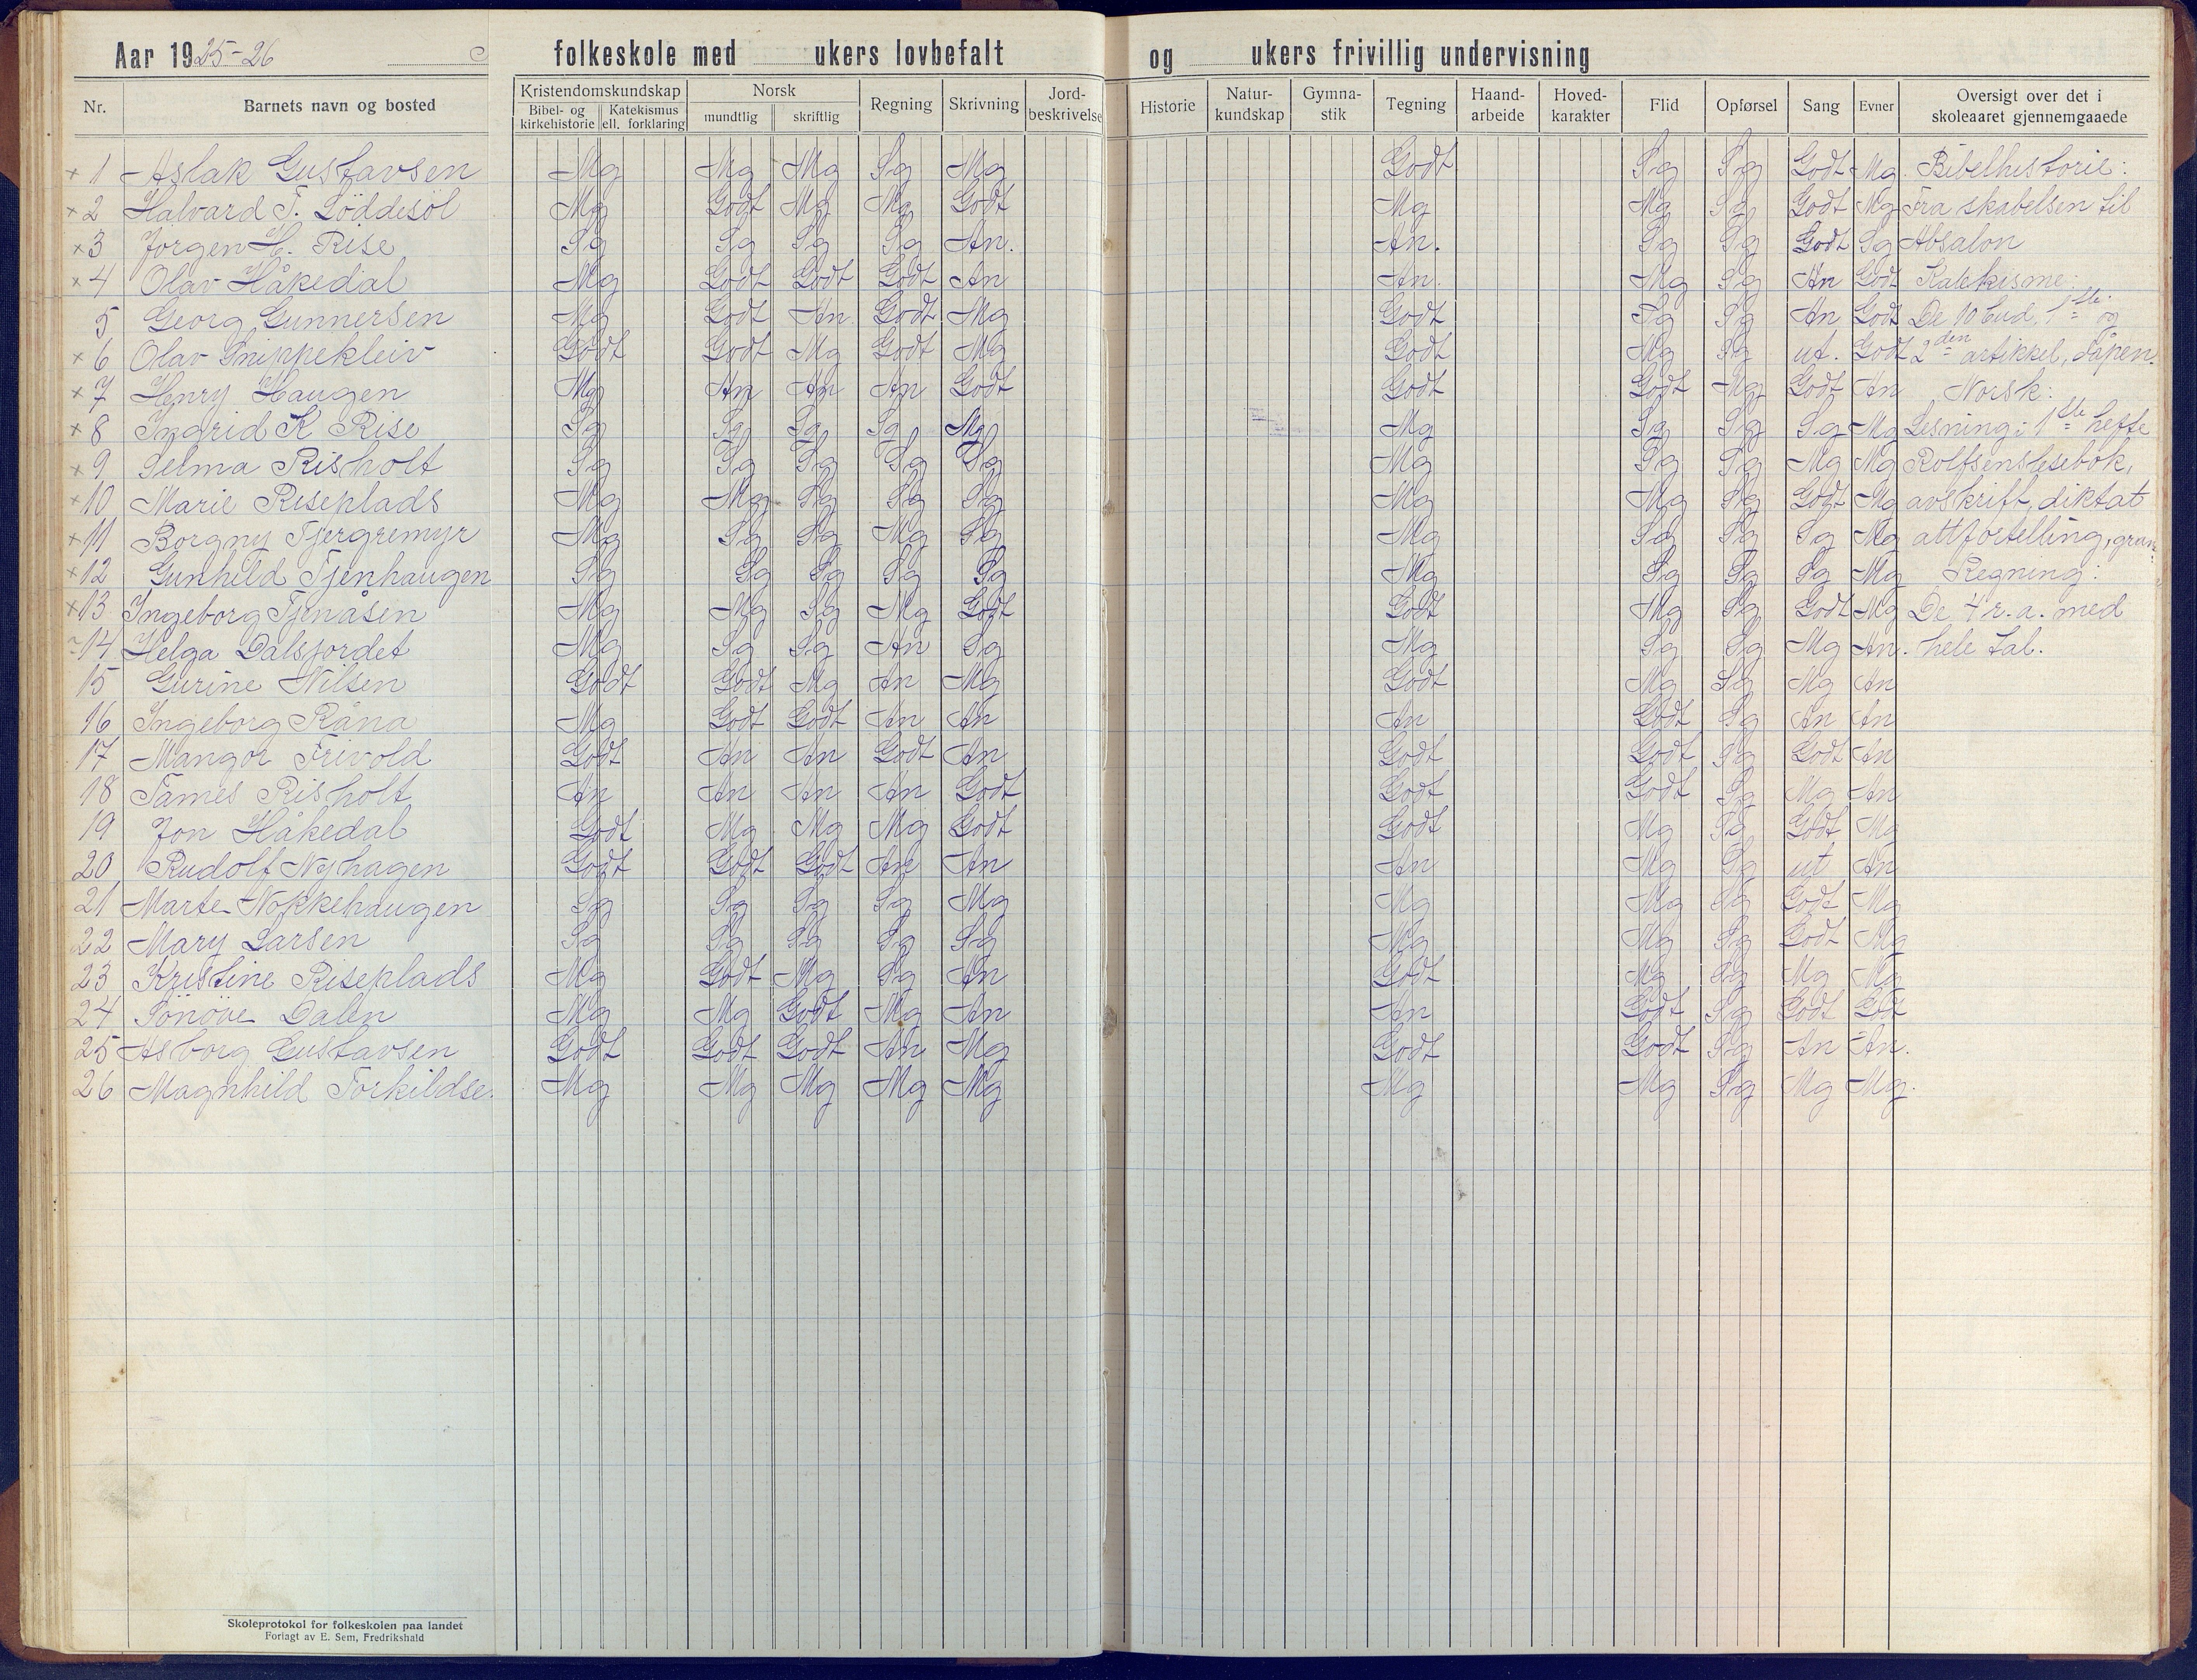 Aar 1925-26 folkeskole med ukers lovbefalt og ukers frivillig undervisning
Nr. Barnets navn og bosted Kristendomskundskap Bibel- og kirkehistorie Katekismus ell. forklaring Norsk mundtlig skriftlig Regning Skrivning Jord-beskrivelse Historie Natur-kundskap Gymna-stik Tegning Haand-arbeide Hoved-karakter Flid Opførsel Sang Evner Oversigt over det i skoleaaret gjennemgaaede
x 1 Aslak Gustavsen Mg Mg Mg Sg Mg Godt Sg Sg Godt Mg. Bibelhistorie:
x 2 Halvard T. Löddesöl Mg Godt Mg Mg Godt Mg Mg Sg Godt Mg Fra skabelsen til
x 3 Jörgen H. Rise Sg Sg Sg Sg An. An. Sg Sg Godt Sg Absalon
x 4 Olav Håkedal Mg Godt Godt Godt An An. Mg Sg An Godt Katekisme:
5 Georg Gunnersen Mg Godt An Godt Mg Godt Sg Sg An Godt De 10 bud, 1ste og
x 6 Olav Snippekleiv Godt Godt Mg Godt Mg Godt Mg Sg ut. Godt 2den artikkel, dåpen.
x 7 Henry Haugen Mg An An An Godt Godt Godt Mg Godt An Norsk:
x 8 Ingrid K Rise Sg Sg Sg Sg Mg Mg Sg Sg Sg Mg Lesning: 1ste hefte
x 9 Selma Risholt Sg Sg Sg Sg Sg Mg Sg Sg Mg Mg Rolfsens lesebok,
x 10 Marie Riseplads Mg Mg Sg Sg Sg Mg Mg Sg Godt Mg avskrift, diktat
x 11 Borgny Tjergremyr Mg Sg Sg Mg Sg Mg Sg Sg Sg Mg attfortelling, gram.
x 12 Gunhild Tjenhaugen Sg Sg Sg Sg Sg Mg Sg Sg Sg Mg Regning:
x 13 Ingeborg Tjenåsen Mg Mg Sg Mg Godt Godt Mg Sg Godt Mg De 4 r.a. med
14 Helga Dalsjordet Mg Sg Sg An Sg Mg Sg Sg Mg An. hele tal.
15 Gurine Nilsen Godt Godt Mg An Mg Godt Mg Sg Mg An
16 Ingeborg Råna Mg Godt Godt An An An Godt Sg An An
17 Mangor Frivold Godt An An Godt An Godt Godt Sg Godt An
18 James Risholt An An An An Godt Godt Godt Sg Mg An
19 Jon Håkedal Godt Mg Mg Mg Godt Godt Mg Sg Godt Mg
20 Rudolf Nyhagen Godt Godt Godt An An An Mg Sg ut An
21 Marte Nokkehaugen Sg Sg Sg Sg Mg Mg Mg Sg Godt Mg
22 Mary Larsen Sg Sg Sg Sg Sg Mg Mg Sg Godt Mg
23 Kristine Riseplads Mg Godt Mg Sg An Godt Mg Sg Mg Mg
24 Sönöve Dalen Mg Mg Godt Mg An An Godt Sg Godt Godt
25 Asborg Gustavsen Godt Godt Godt An Mg Godt Godt Sg An An.
26 Magnhild Torkildse. Mg Mg Mg Mg Mg Mg Mg Sg Mg Mg.
Skoleprotokol for folkeskolen paa landet
Forlagt av E. Sem, Fredrikshald